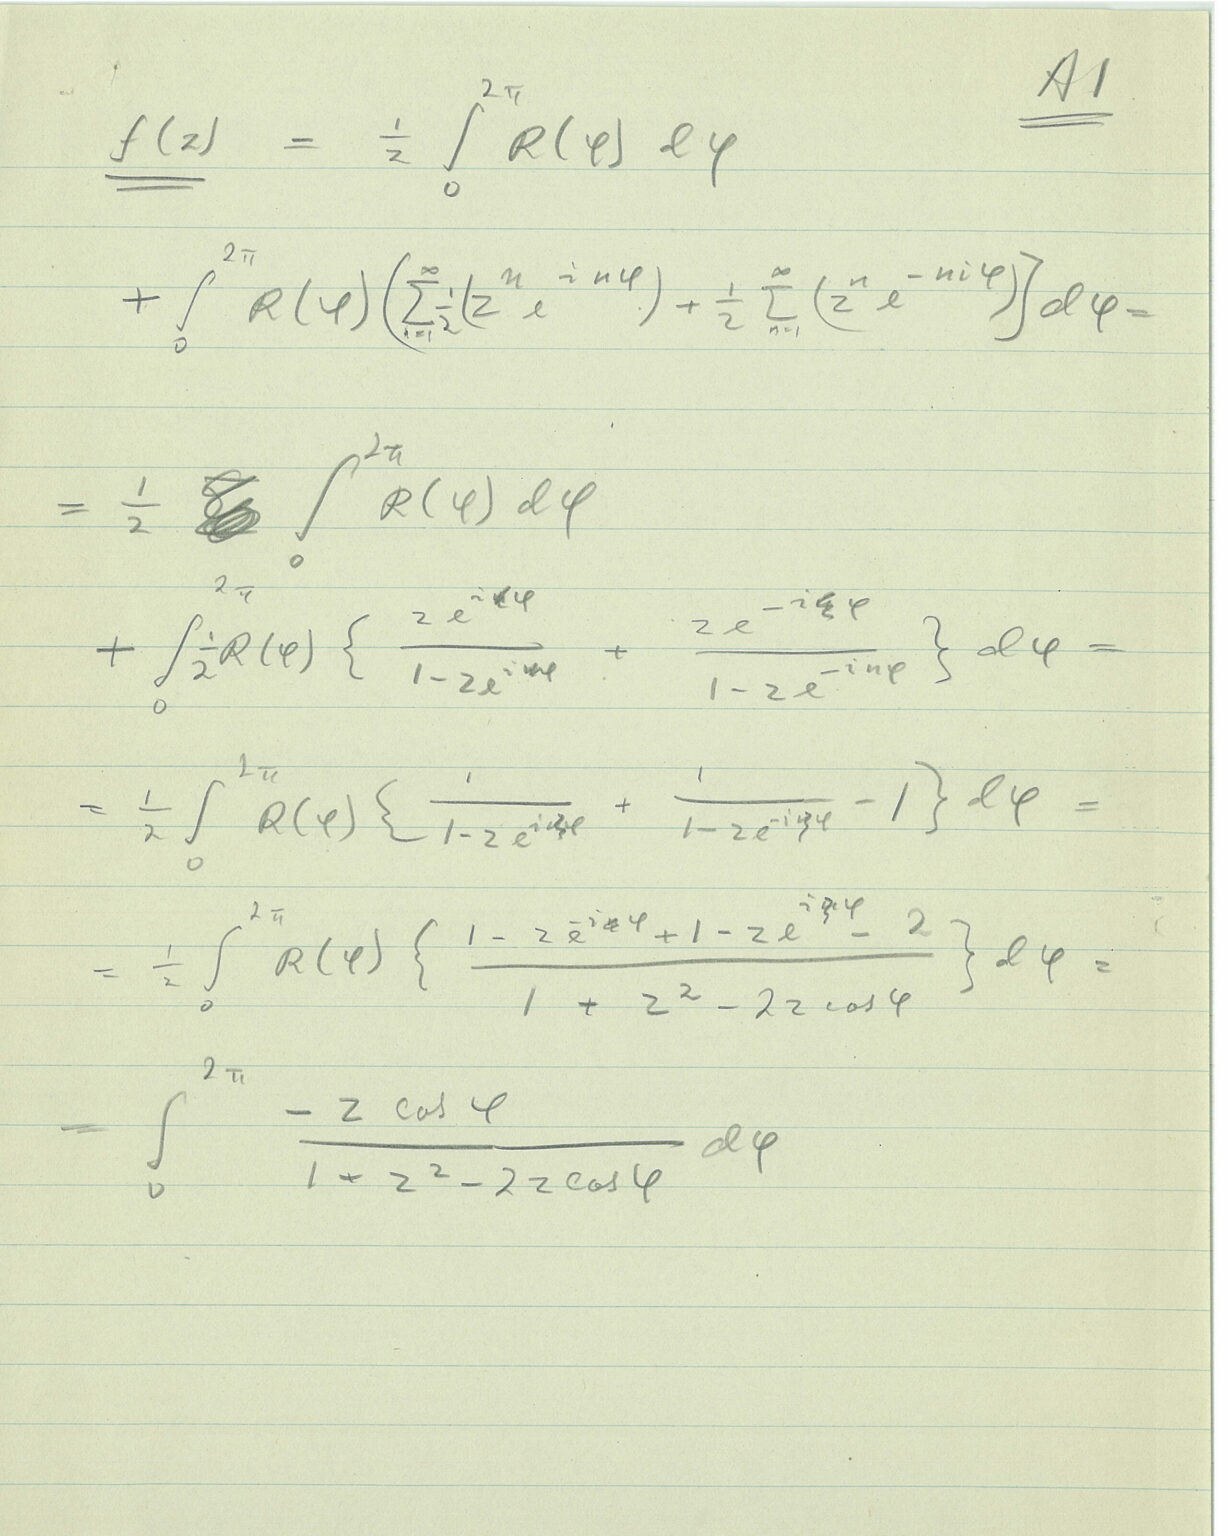 A1
f(z) = 1/2 ∫₀^{2π} R(φ) dφ
+ ∫₀^{2π} R(φ) (∑_{n=1}^{∞} 1/2 (z^n e^{inφ}) + 1/2 ∑_{n=1}^{∞} (z^n e^{-niφ})] dφ =
= 1/2 ∫₀^{2π} R(φ) dφ
+ ∫₀^{2π} 1/2 R(φ) { z e^{iφ} / (1 - z e^{iφ}) + z e^{-iφ} / (1 - z e^{-inφ}) } dφ =
= 1/2 ∫₀^{2π} R(φ) { 1 / (1 - z e^{iφ}) + 1 / (1 - z e^{-iφ}) - 1 } dφ =
= 1/2 ∫₀^{2π} R(φ) { (1 - z e^{-iφ} + 1 - z e^{iφ} - 2) / (1 + z² - 2z cos φ) } dφ =
= ∫₀^{2π} (- z cos φ) / (1 + z² - 2z cos φ) dφ